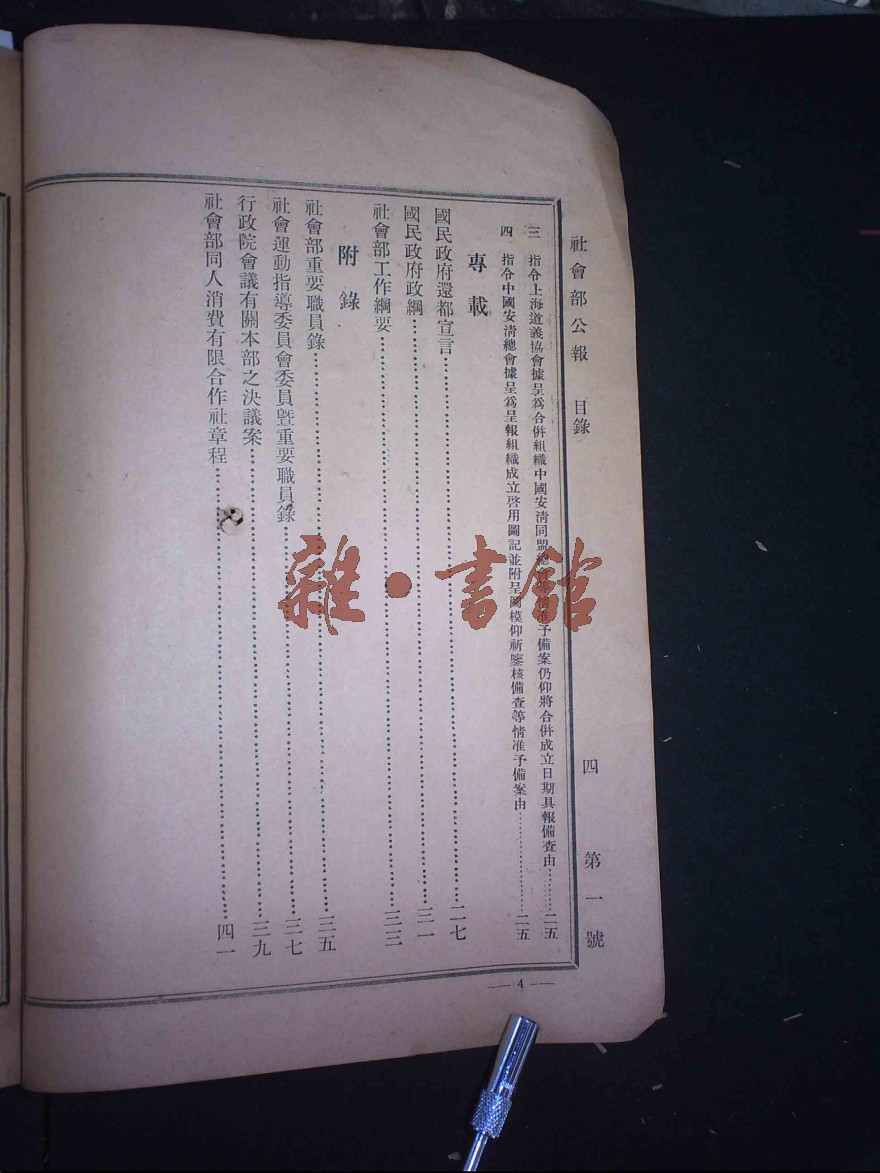 社會部公報　目錄　四　第一號
三　指令上海道義協會據呈爲合併組織中國安淸同盟總會等情准予備案仍仰將合併成立日期具報備查由…………二五
四　指令中國安淸總會據呈爲呈報組織成立啓用圖記並附呈圖模仰祈鑒核備查等情准予備案由…………二五
專載
國民政府還都宣言…………二七
國民政府政綱…………三一
社會部工作綱要…………三三
附錄
社會部重要職員錄…………三五
社會運動指導委員會委員曁重要職員錄…………三七
行政院會議有關本部之決議案…………三九
社會部同人消費有限合作社章程…………四一
— 4 —
雜·書館